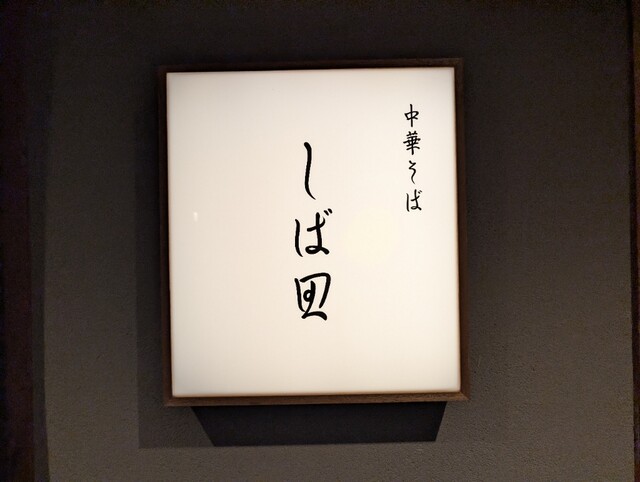 中華そば
しば田